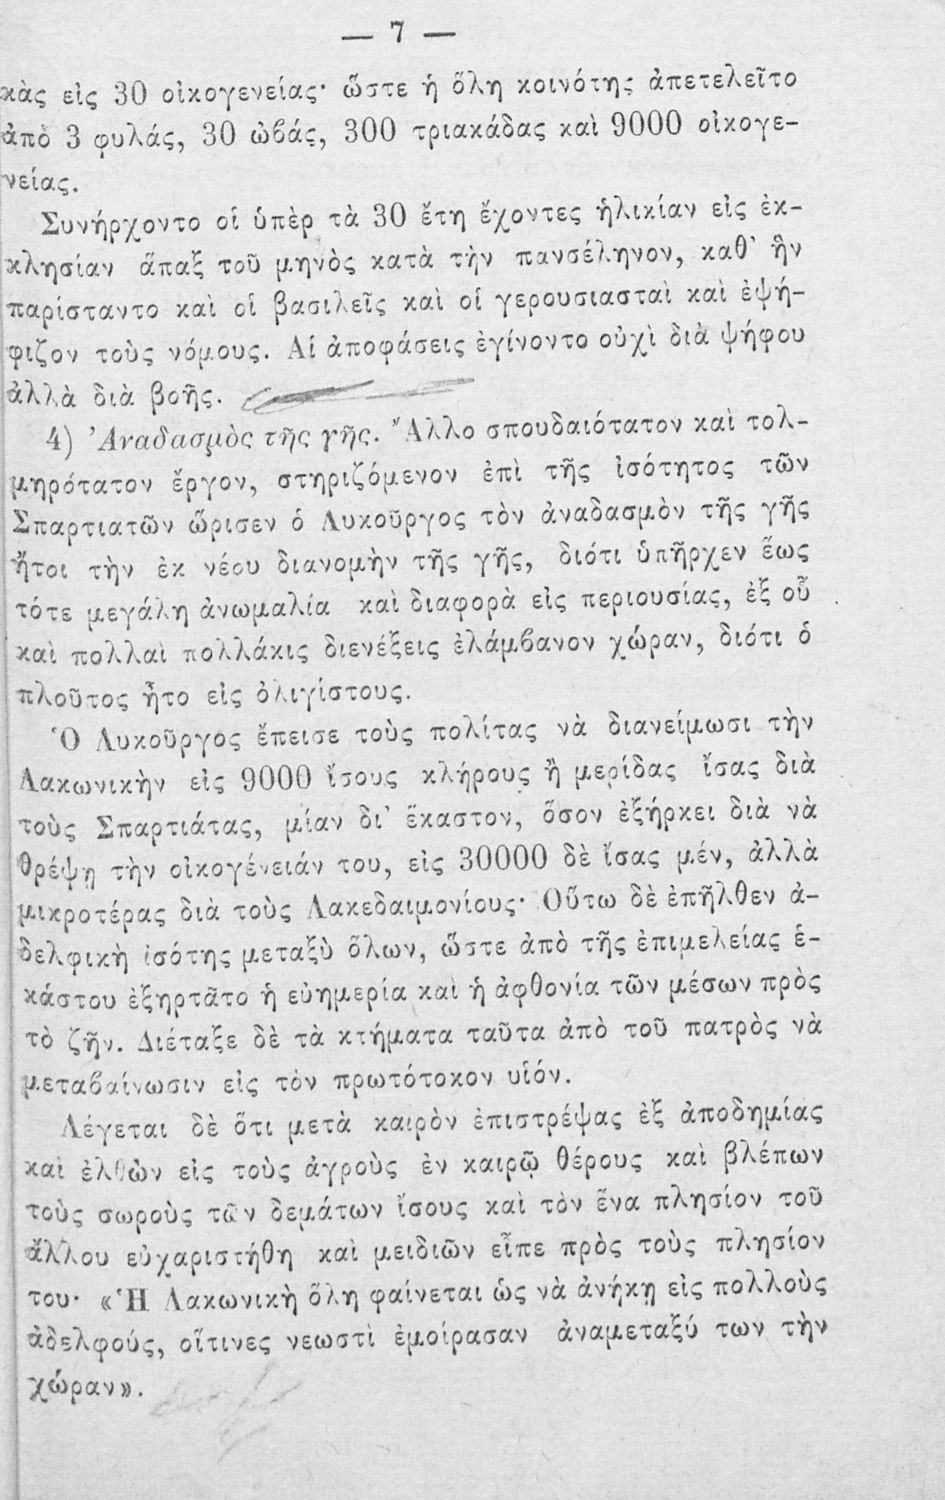 — 7 —
κὰς εἰς 30 οἰκογενείας· ὥστε ἡ ὅλη κοινότης ἀπετελεῖτο
ἀπὸ 3 φυλάς, 30 ὠβάς, 300 τριακάδας καὶ 9000 οἰκογε-
νείας.
Συνήρχοντο οἱ ὑπὲρ τὰ 30 ἔτη ἔχοντες ἡλικίαν εἰς ἐκ-
κλησίαν ἅπαξ τοῦ μηνὸς κατὰ τὴν πανσέληνον, καθ᾽ ἣν
παρίσταντο καὶ οἱ βασιλεῖς καὶ οἱ γερουσιασταὶ καὶ ἐψή-
φιζον τοὺς νόμους. Αἱ ἀποφάσεις ἐγίνοντο οὐχὶ διὰ ψήφου
ἀλλὰ διὰ βοῆς.
4) Ἀναδασμὸς τῆς γῆς. Ἄλλο σπουδαιότατον καὶ τολ-
μηρότατον ἔργον, στηριζόμενον ἐπὶ τῆς ἰσότητος τῶν
Σπαρτιατῶν ὥρισεν ὁ Λυκοῦργος τὸν ἀναδασμὸν τῆς γῆς
ἤτοι τὴν ἐκ νέου διανομὴν τῆς γῆς, διότι ὑπῆρχεν ἕως
τότε μεγάλη ἀνωμαλία καὶ διαφορὰ εἰς περιουσίας, ἐξ οὗ
καὶ πολλαὶ πολλάκις διενέξεις ἐλάμβανον χώραν, διότι ὁ
πλοῦτος ἦτο εἰς ὀλιγίστους.
Ὁ Λυκοῦργος ἔπεισε τοὺς πολίτας νὰ διανείμωσι τὴν
Λακωνικὴν εἰς 9000 ἴσους κλήρους ἢ μερίδας ἴσας διὰ
τοὺς Σπαρτιάτας, μίαν δι᾽ ἕκαστον, ὅσον ἐξήρκει διὰ νὰ
θρέψῃ τὴν οἰκογένειάν του, εἰς 30000 δὲ ἴσας μέν, ἀλλὰ
μικροτέρας διὰ τοὺς Λακεδαιμονίους· Οὕτω δὲ ἐπῆλθεν ἀ-
δελφικὴ ἰσότης μεταξὺ ὅλων, ὥστε ἀπὸ τῆς ἐπιμελείας ἑ-
κάστου ἐξηρτᾶτο ἡ εὐημερία καὶ ἡ ἀφθονία τῶν μέσων πρὸς
τὸ ζῆν. Διέταξε δὲ τὰ κτήματα ταῦτα ἀπὸ τοῦ πατρὸς νὰ
μεταβαίνωσιν εἰς τὸν πρωτότοκον υἱόν.
Λέγεται δὲ ὅτι μετὰ καιρὸν ἐπιστρέψας ἐξ ἀποδημίας
καὶ ἐλθὼν εἰς τοὺς ἀγροὺς ἐν καιρῷ θέρους καὶ βλέπων
τοὺς σωροὺς τῶν δεμάτων ἴσους καὶ τὸν ἕνα πλησίον τοῦ
ἄλλου εὐχαριστήθη καὶ μειδιῶν εἶπε πρὸς τοὺς πλησίον
του· «Ἡ Λακωνικὴ ὅλη φαίνεται ὡς νὰ ἀνήκῃ εἰς πολλοὺς
ἀδελφούς, οἵτινες νεωστὶ ἐμοίρασαν ἀναμεταξύ των τὴν
χώραν».